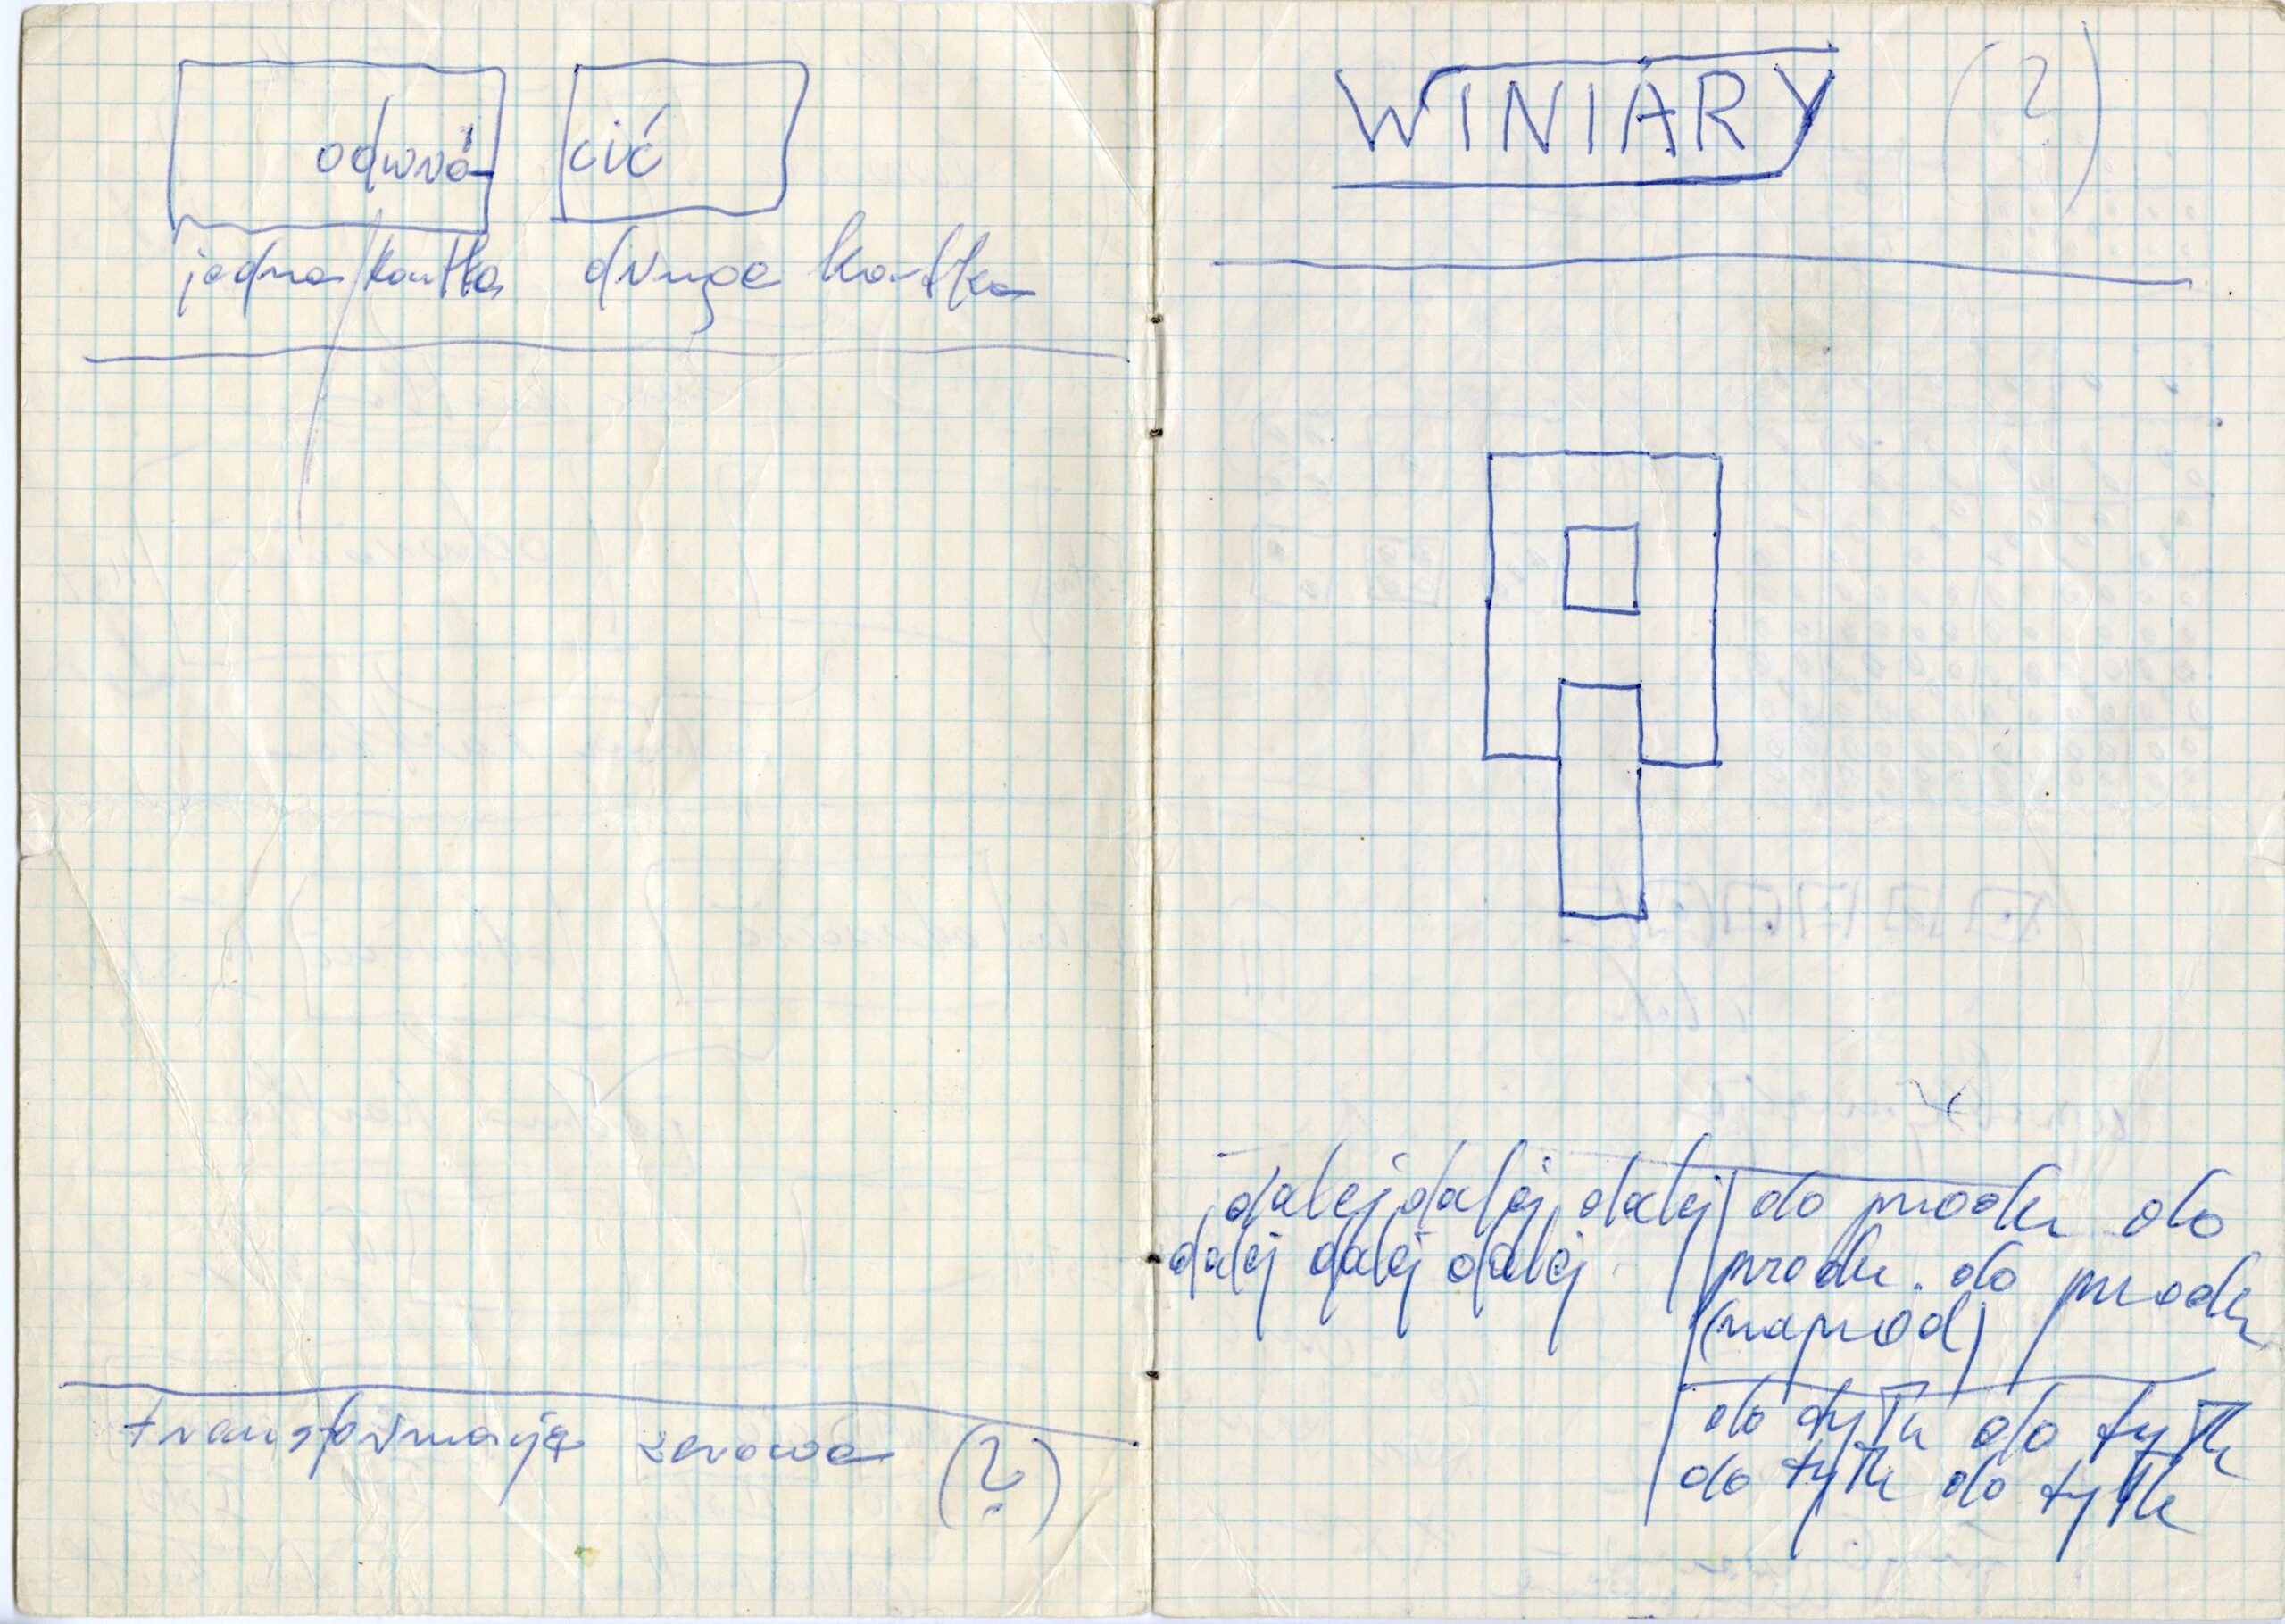 odwró-
cić
jedna kartka
druga kartka
transformacja zerowa (?)
WINIARY (?)
dalej dalej dalej
dalej dalej dalej
do przodu do
przodu. do przodu
(naprzód)
do tyłu do tyłu
do tyłu do tyłu